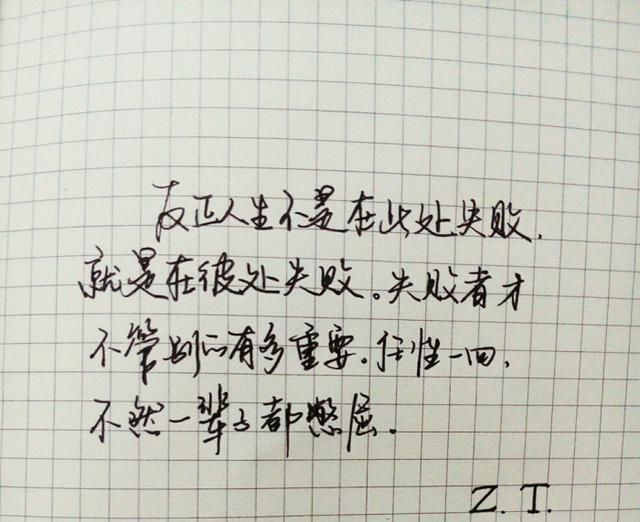 反正人生不是在此处失败,
就是在彼处失败。失败者才
不管别的有多重要.任性一回,
不然一辈子都憋屈.
Z. T.